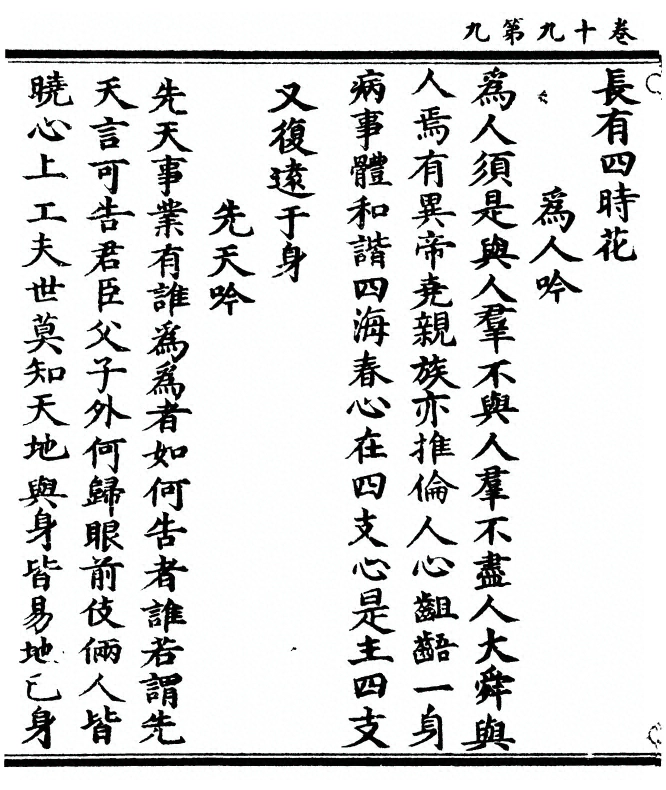 卷十九第九
長有四時花
爲人吟
爲人須是與人羣不與人羣不盡人大舜與
人焉有異帝堯親族亦推倫人心齟齬一身
病事體和諧四海春心在四支心是主四支
又復遠于身
先天吟
先天事業有誰爲爲者如何告者誰若謂先
天言可告君臣父子外何歸眼前伎倆人皆
曉心上工夫世莫知天地與身皆易地已身